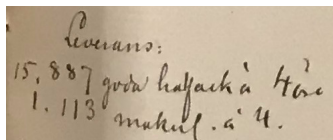 Leverans:
15,887 goda à 4 öre
1.113 makul. à 4.